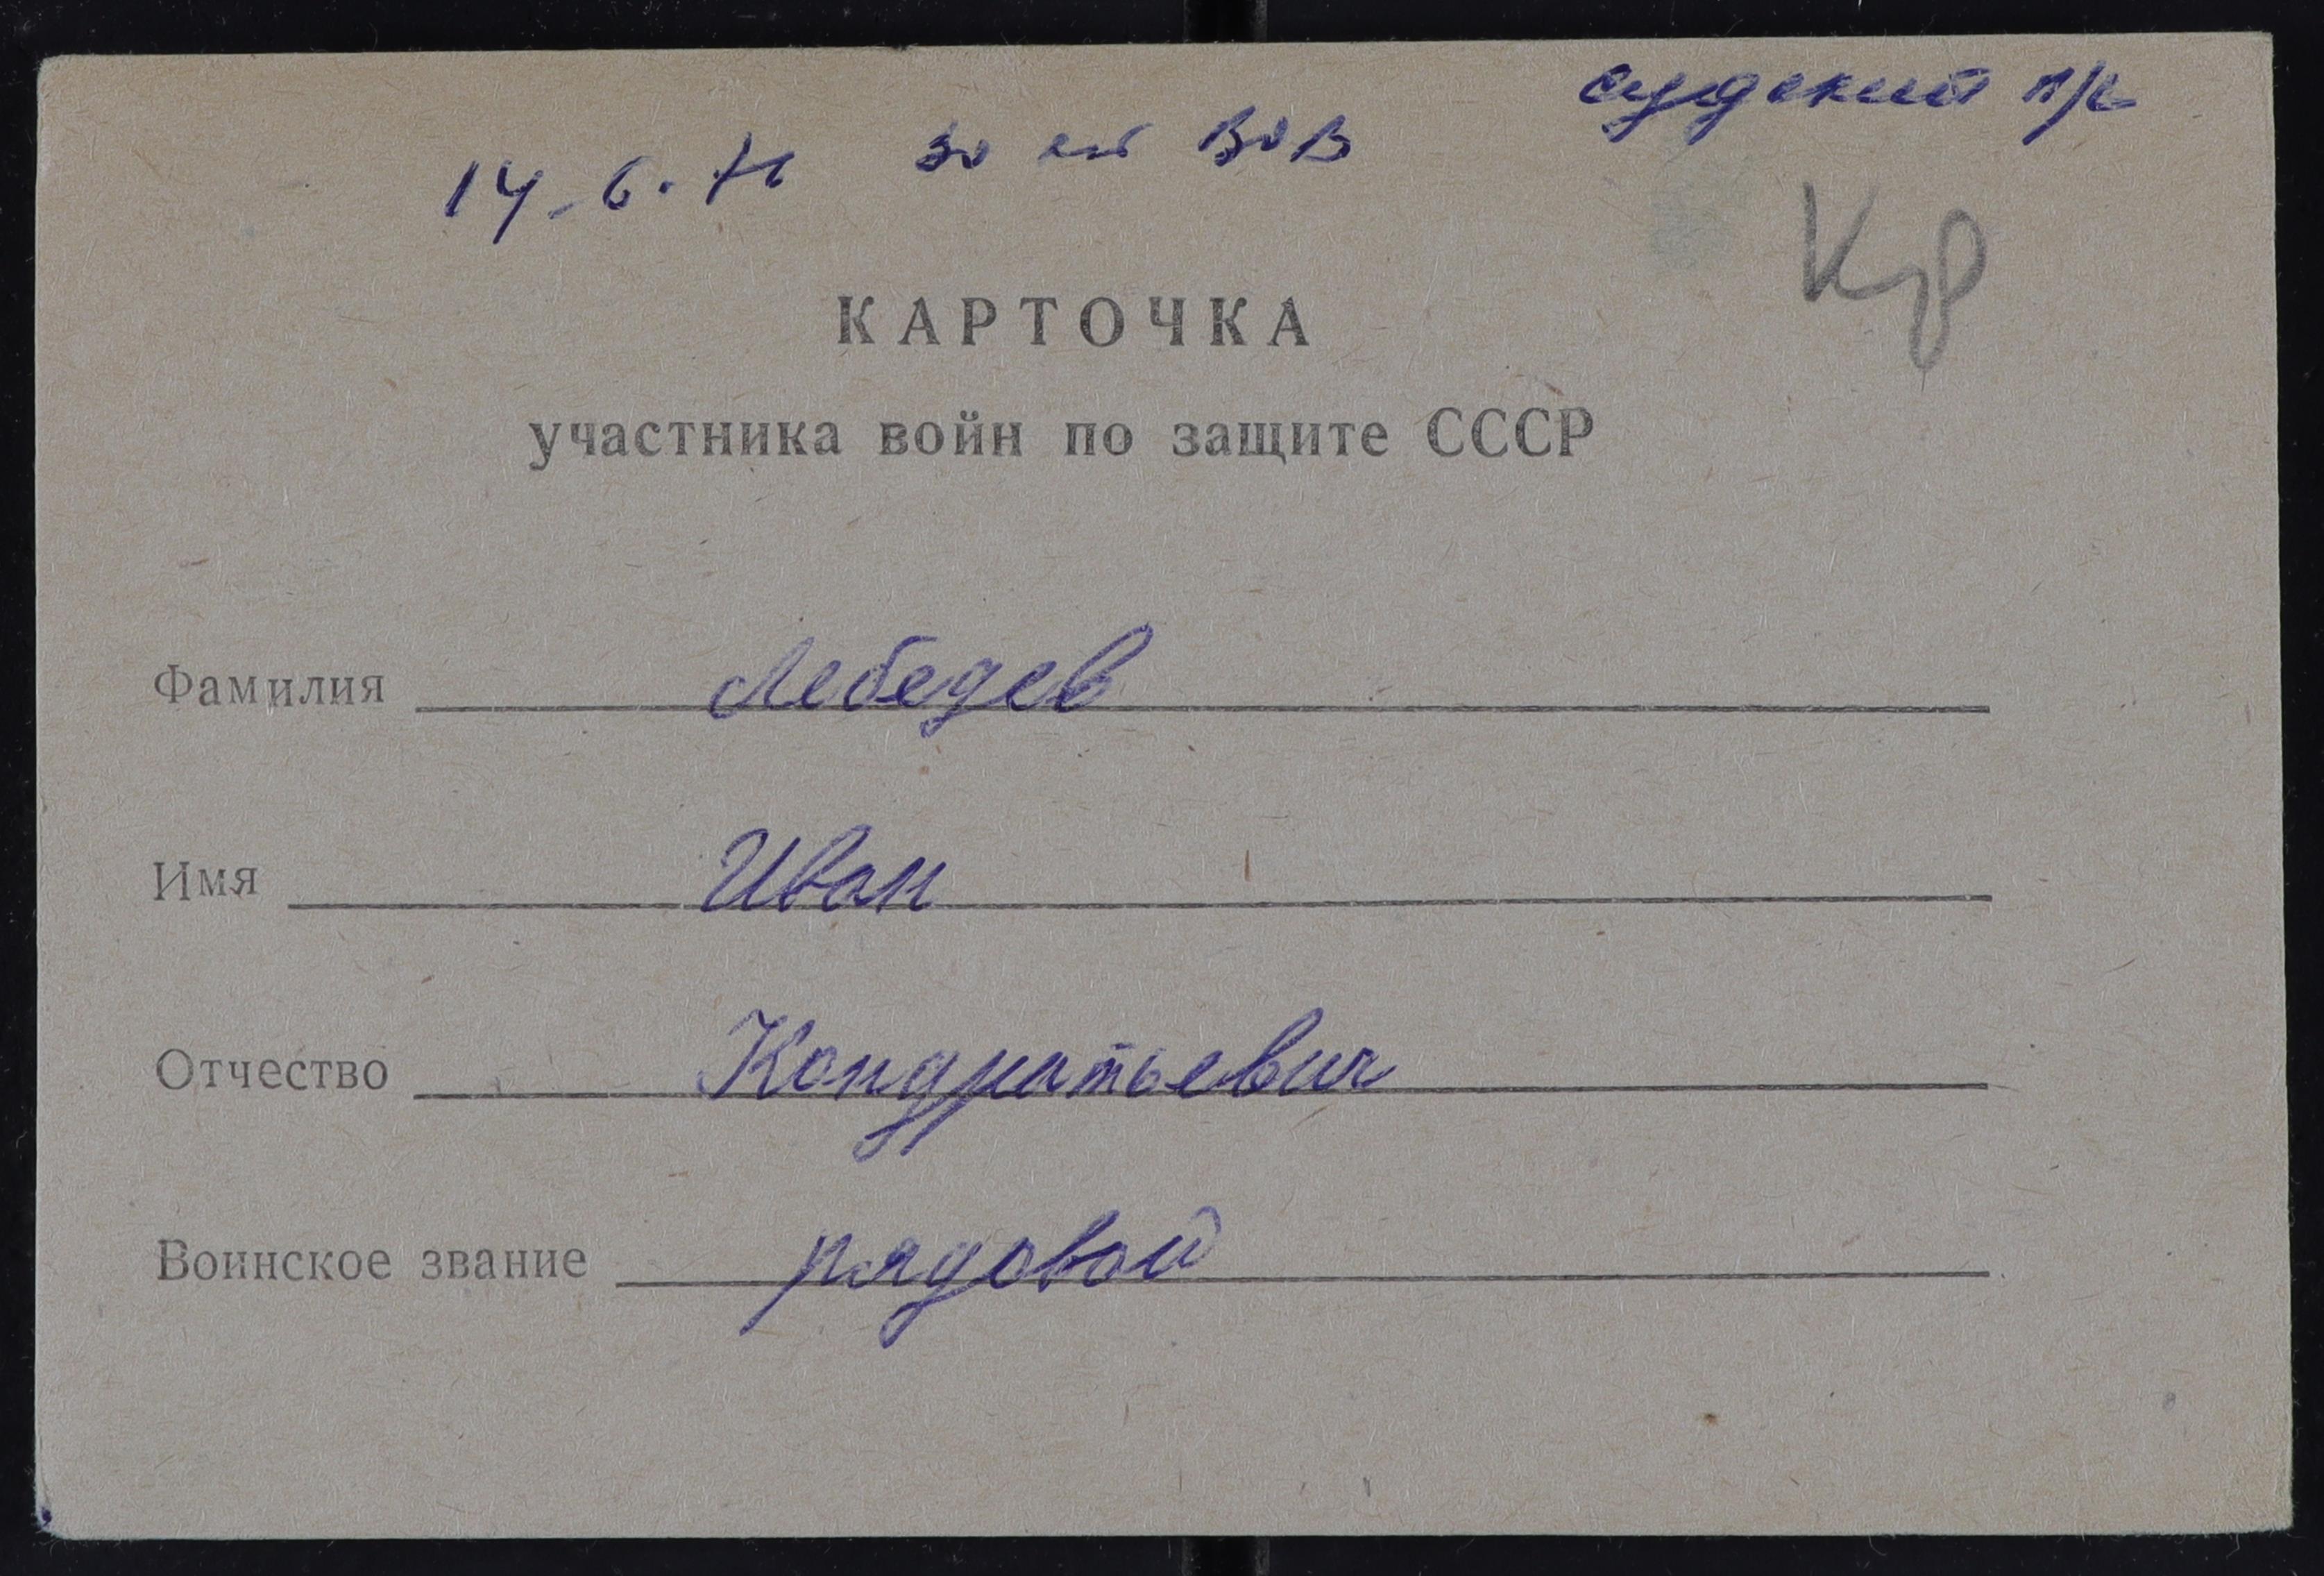 судский п/с
14.6.71 30 лет ВОВ
Кр
КАРТОЧКА
участника войн по защите СССР
Фамилия Лебедев
Имя Иван
Отчество Кондратьевич
Воинское звание рядовой